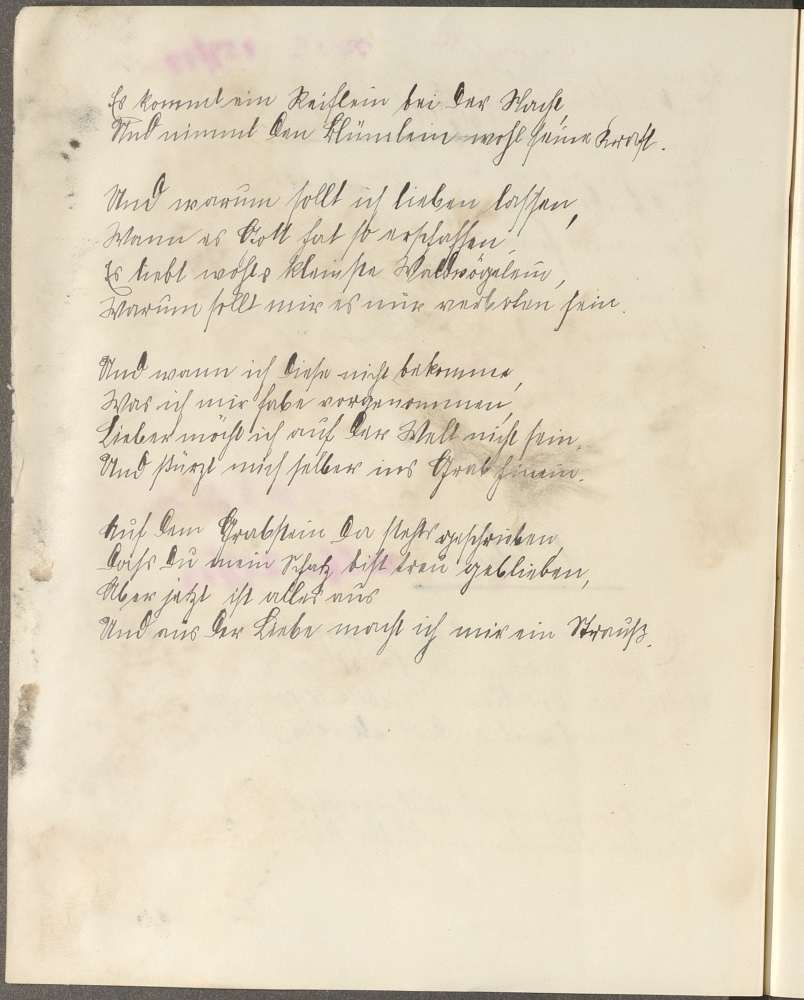 Es kommt ein Reiflein bei der Nacht,
Und nimmt den Blümlein wohl seine Kraft.
Und warum sollt ich lieben lassen,
Wann es Gott hat so erschaffen,
Es liebt wohls kleinste Waldvögelein,
Warum sollt mir es nur verboten sein.
Und wann ich diese nicht bekomme,
Was ich mir habe vorgenommen,
Lieber möcht ich auf der Welt nicht sein,
Und stürzt mich selber ins Grab hinein.
Auf dem Grabstein da stehts geschrieben,
Dass du mein Schatz bist treu geblieben,
Aber jetzt ist alles aus
Und aus der Liebe macht ich mir ein Strauß.